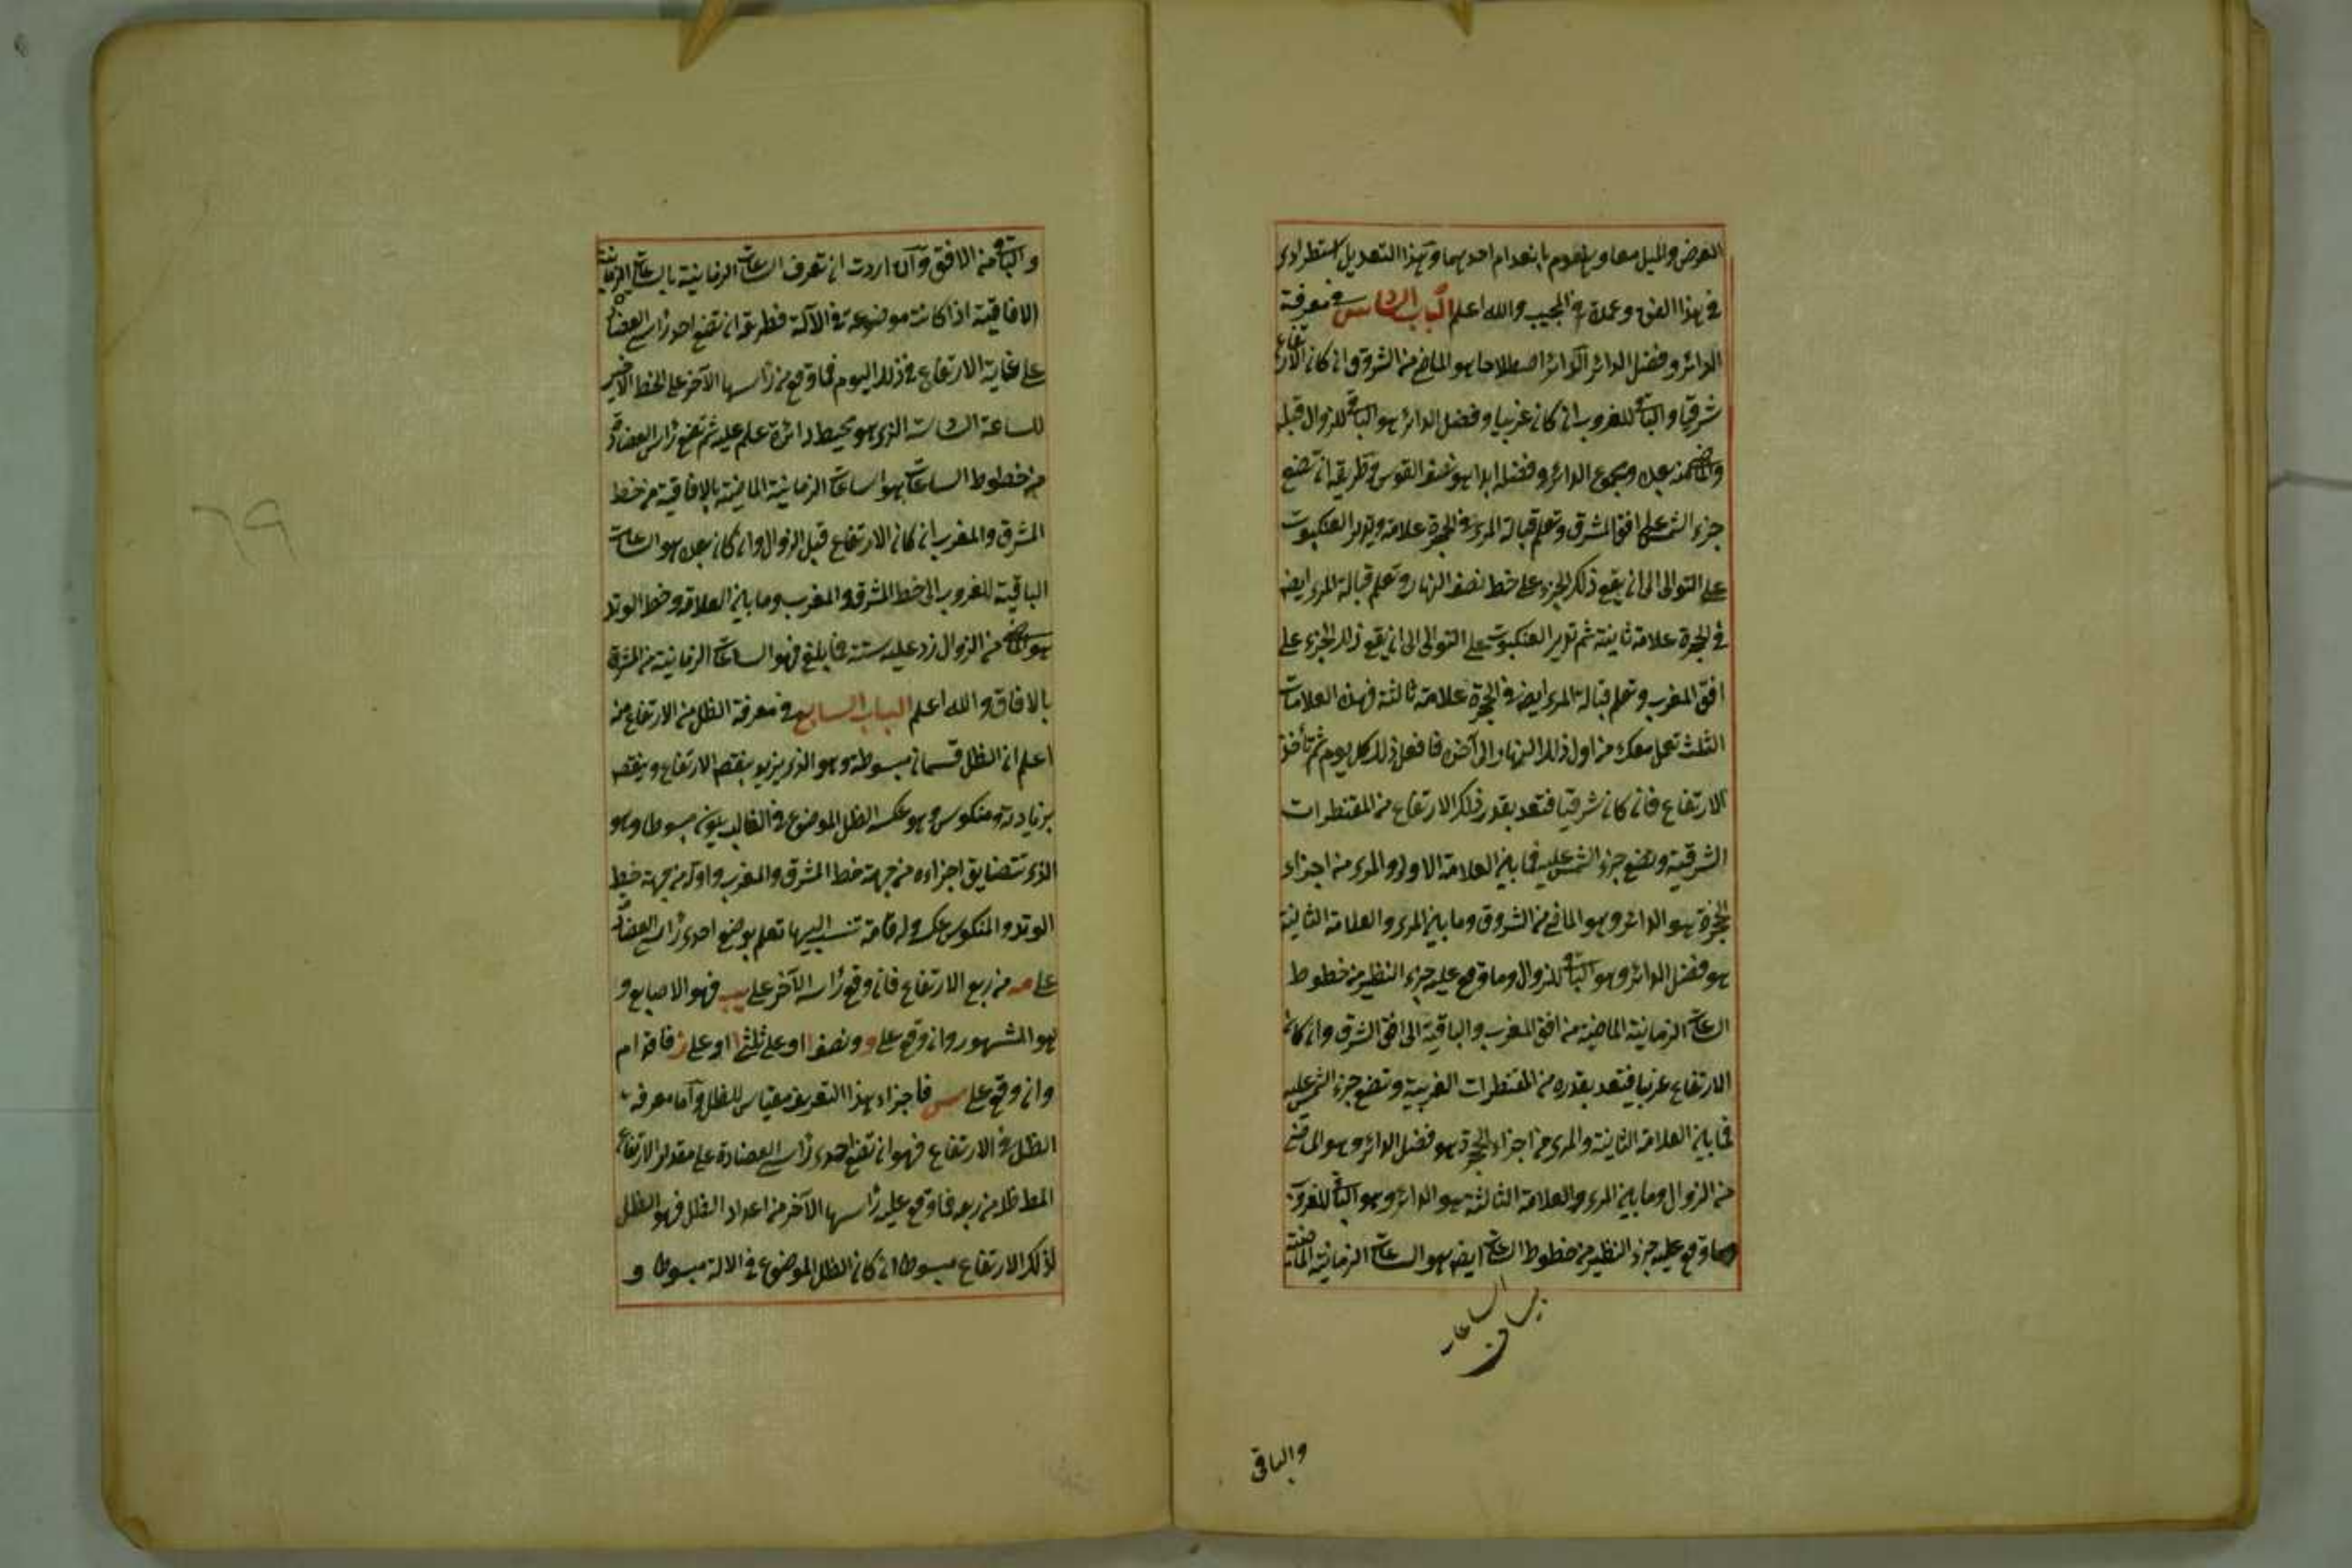 العرض والميل معا وينعدم بانعدام احدهما وهذا التعديل استطرادى
فى هذا الفن وعمدة فى المجيب والله اعلم الباب السادس فى معرفة
الدائر وفضل الدائر الدائر اصطلاحا هو الماضى من الشروق ان كان الارتفاع
شرقيا والباقى للغروب ان كان غربيا وفضل الدائر هو الباقى للزوال قبله
والماضى منه بعده ومجموع الدائر وفضله ابدا هو نصف القوس وطريقه ان تضع
جزء الشمس على افق المشرق وتعلم قبالة المرى فى الحجرة علامة وتدير العنكبوت
على التوالى الى ان يقع ذلك الجزء على خط نصف النهار وتعلم قبالة المرى ايضا
فى الحجرة علامة ثانية ثم تدير العنكبوت على التوالى الى ان يقع ذلك الجزء على
افق المغرب وتعلم قبالة المرى ايضا فى الحجرة علامة ثالثة فهذه العلامات
الثلث تعمل معك من اول ذلك النهار الى آخره فافعل ذلك كل يوم ثم تأخذ
الارتفاع فان كان شرقيا فتعد بقدر ذلك الارتفاع من المقنطرات
الشرقية وتضع جزء الشمس عليه فما بين العلامة الاولى والمرى من اجزاء
الحجرة هو الدائر وهو الماضى من الشروق وما بين المرى والعلامة الثانية
هو فضل الدائر وهو الباقى للزوال وما وقع عليه جزء النظير من خطوط
الساعات الزمانية الماضية من افق المغرب والباقية الى افق الشرق وان كان
الارتفاع غربيا فتعد بقدره من المقنطرات الغربية وتضع جزء الشمس عليه
فما بين العلامة الثانية والمرى من اجزاء الحجرة هو فضل الدائر وهو الماضى
من الزوال وما بين المرى والعلامة الثالثة هو الدائر وهو الباقى للغروب
وما وقع عليه جزء النظير من خطوط الساعات ايضا هو الساعات الزمانية الماضية
والباقى
والباقى من الافق وان اردت ان تعرف الساعات الزمانية بالساعات الزمانية
الافاقية اذا كانت موضوعة فى الآلة فطريقه ان تضع احد رأسى العضادة
على غاية الارتفاع فى ذلك اليوم فما وقع من رأسها الآخر على الخط الاخير
للساعة السادسة الذى هو محيط دائرة علم عليه ثم تضع رأس العضادة
من خطوط الساعات هو الساعات الزمانية الماضية بالافاقية من خط
المشرق والمغرب ان كان الارتفاع قبل الزوال وان كان بعده هو الساعات
الباقية للغروب الى خط المشرق والمغرب وما بين العلامة وخط الوتد
هو الماضى من الزوال زد عليه ستة فما بلغ فهو الساعات الزمانية من الشرق
بالافاق والله اعلم الباب السابع فى معرفة الظل من الارتفاع منه
اعلم ان الظل قسمان مبسوطة وهو الذى يزيد بنقص الارتفاع وينقص
بزيادته ومنكوس وهو عكسه الظل الموضوع فى الغالب يكون مبسوطا وهو
الذى تتضايق اجزاءه من جهة خط المشرق والمغرب واوله من جهة خط
الوتد والمنكوس عكسه وله قامة تنسب اليها تعلم بوضع احدى رأسى العضادة
على مه من ربع الارتفاع فان وقع رأسه الآخر على يب فهو الاصابع و
هو المشهور وان وقع على و ونصف او على ثلثى او على ز فاقدام
وان وقع على س فاجزاء هذا التعريف مقياس للظل واما معرفة
الظل من الارتفاع فهو ان تضع احدى رأسى العضادة على مقدار الارتفاع
المط ظله من ربعه فما وقع عليه رأسها الآخر من اعداد الظل فهو الظل
لذلك الارتفاع مبسوطا ان كان الظل الموضوع فى الالة مبسوطا و